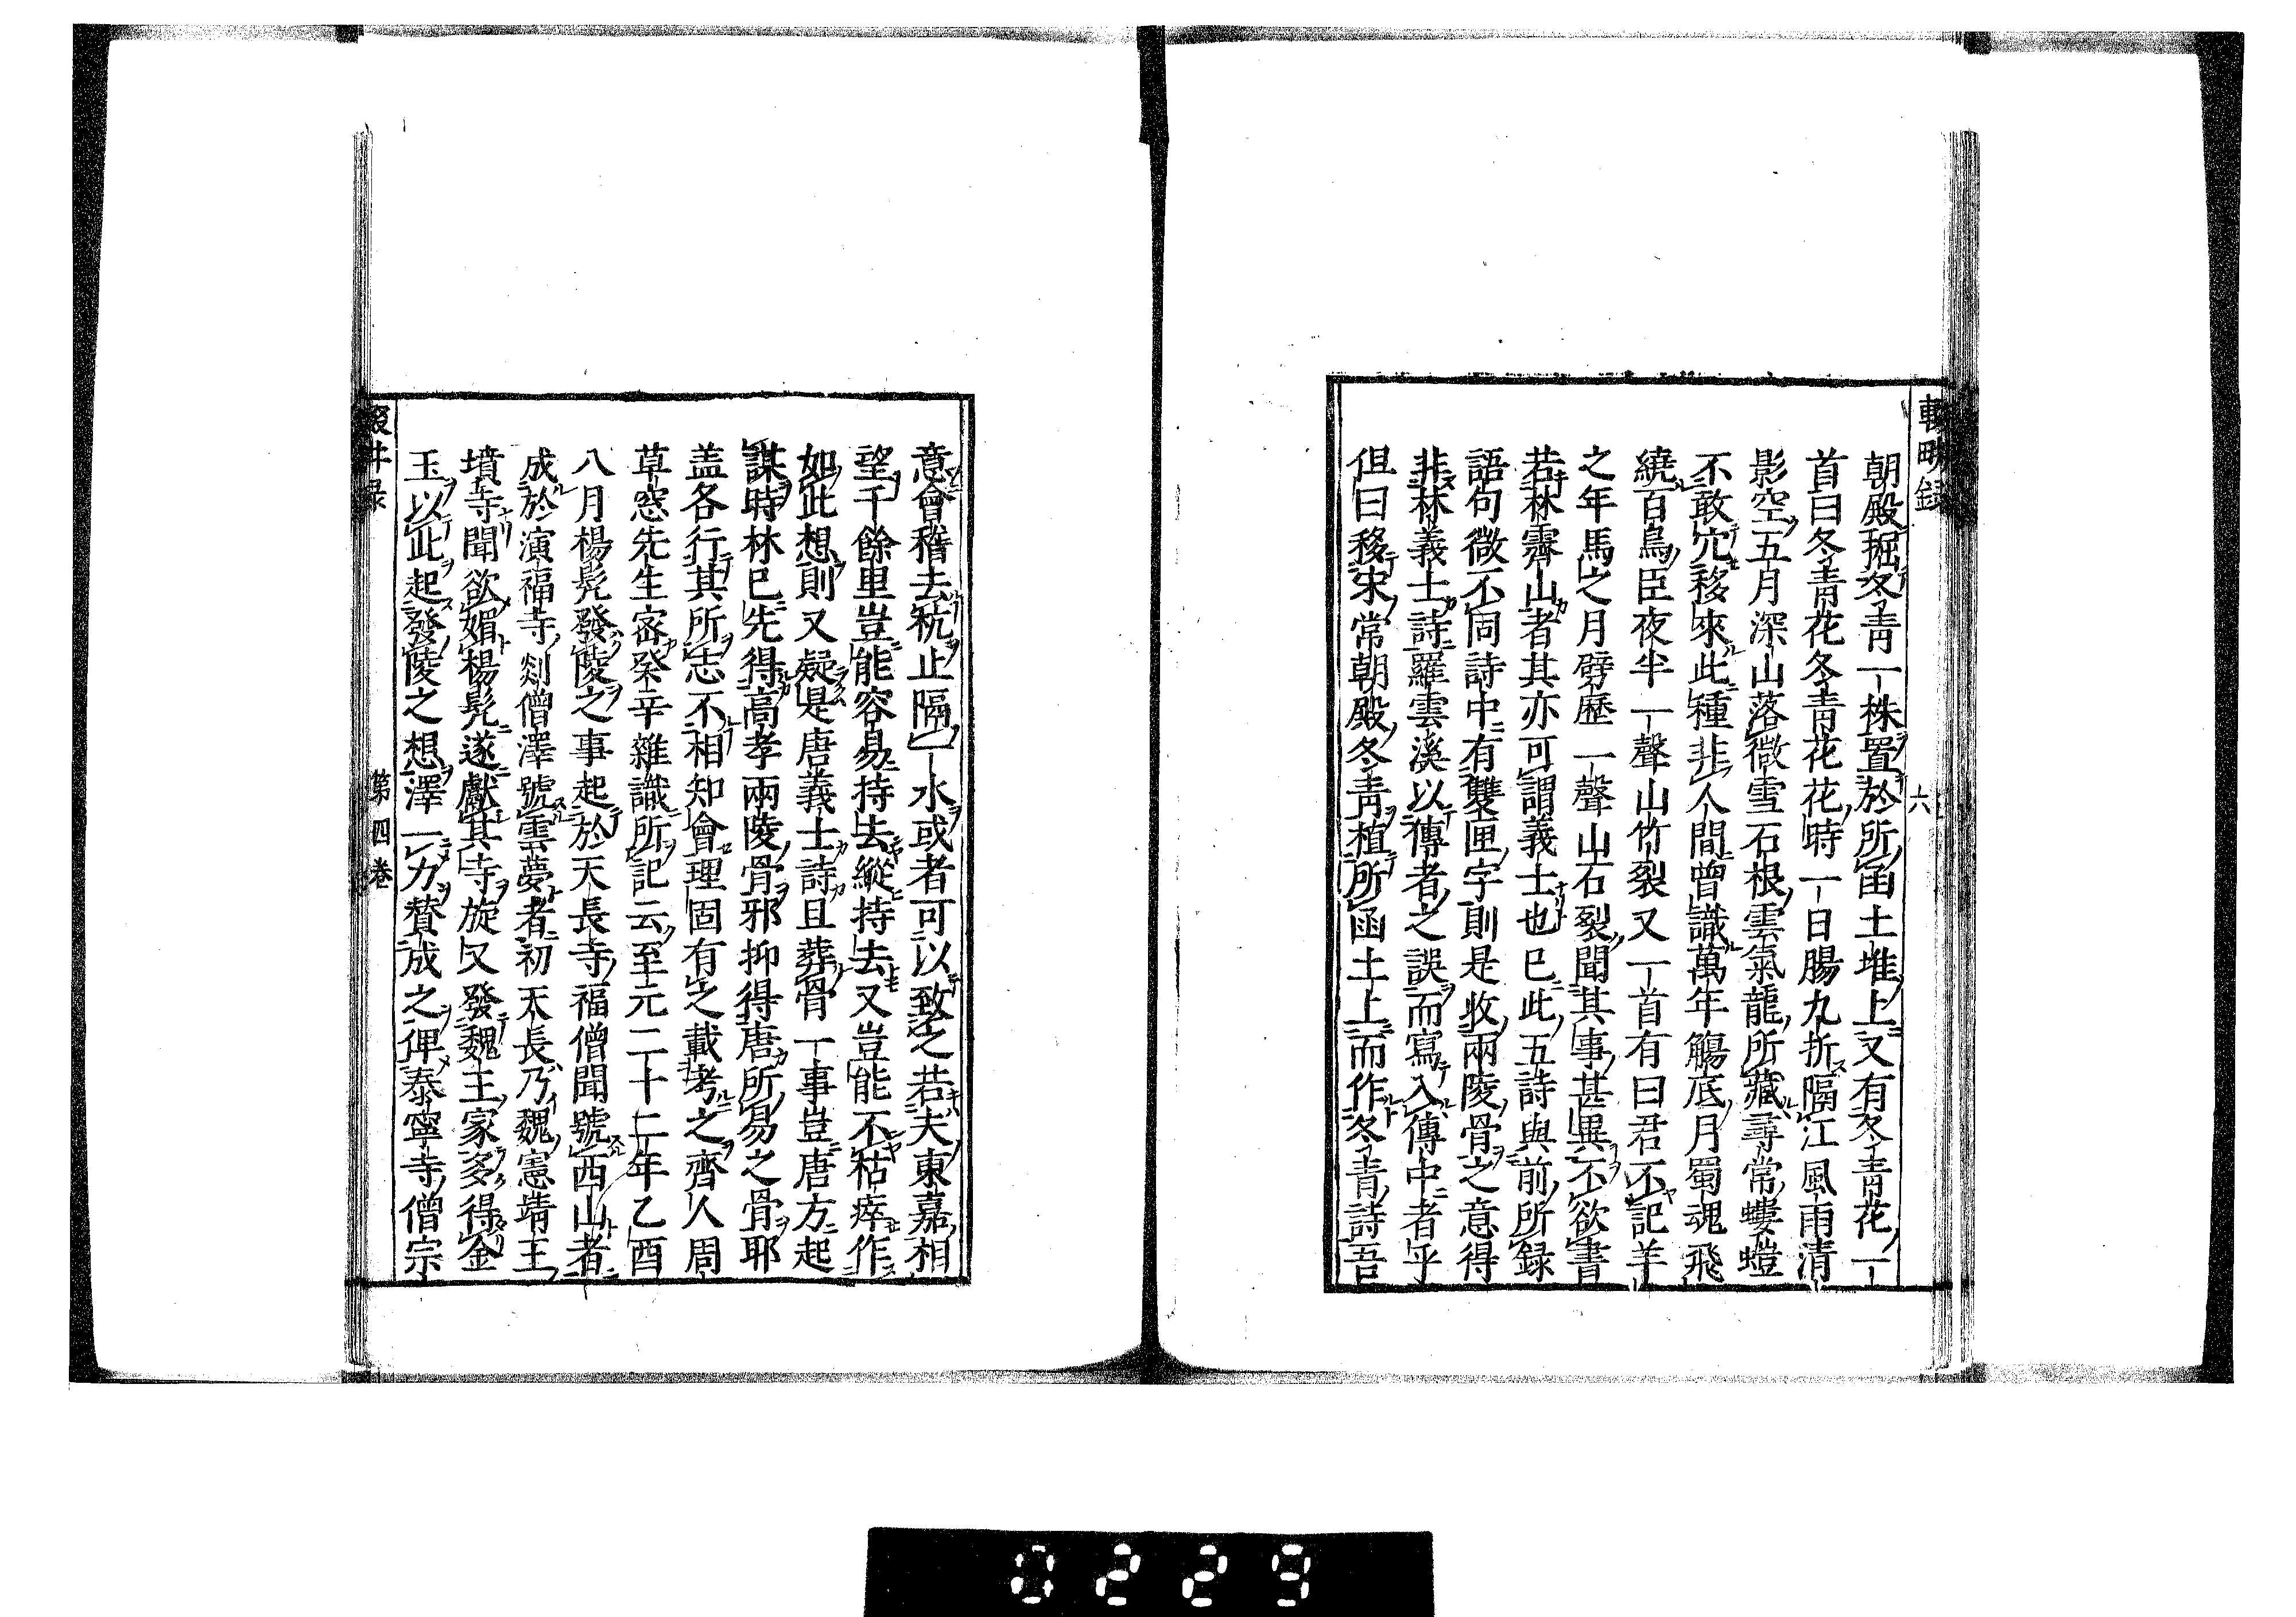 輟畊録
六
朝殿掘冬青一株置於所函土堆上又有冬青花一
首曰冬青花冬青花花時一日腸九折隔江風雨清
影空五月深山落微雪石根雲氣龍所藏尋常螻螘
不敢穴移來此種非人間曽識萬年觴底月蜀魂飛
繞百鳥臣夜半一聲山竹裂又一首有曰君不記羊
之年馬之月劈歷一聲山石裂聞其事甚異不欲書
若林霽山者其亦可謂義士也巳此五詩與前所録
語句微不同詩中有雙匣字則是收兩陵骨之意得
非林義士詩羅雲溪以傳者之誤而寫入傳中者乎
但曰移宋常朝殿冬青植所函土上而作冬青詩吾
意會稽去杭止隔一水或者可以致之若夫東嘉相
望千餘里豈能容易持去縱持去又豈能不枯瘁作
如此想則又疑是唐義士詩且葬骨一事豈唐方起
謀時林巳先得高孝兩陵骨邪抑得唐所易之骨耶
盖各行其所志不相知會理固有之載考之齊人周
草窓先生密癸辛雜識所記云至元二十二年乙酉
八月楊髠發陵之事起於天長寺福僧聞號西山者
成於演福寺剡僧澤號雲夢者初天長乃魏憲靖王
墳寺聞欲媚楊髠遂獻其寺旋又發魏王家多得金
玉以此起發陵之想澤一力賛成之俾泰寧寺僧宗
輟畊録
第四巻
0229